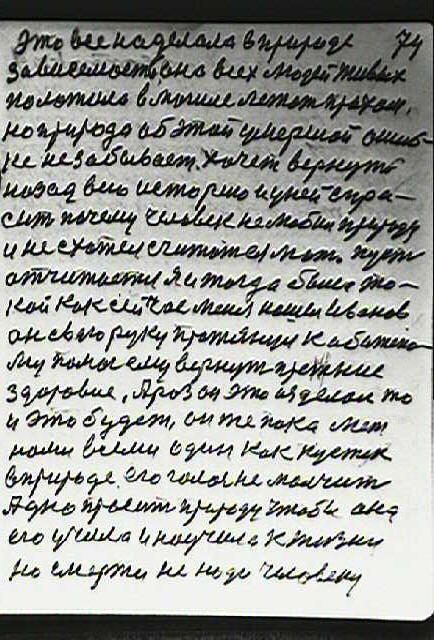 это все наделала в природе 74
зависемость она всех людей живых
положила в могиле лежат прахом,
но природа об этой умершой ошиб-
ке не забывает. хочет вернуть
назад всю историю и у ней спра-
сить почему человек не любил природу
и не схотел считатся пусть
отчитается я и тогда была та-
кой как сейчас меня нашел Иванов
он свою руку протянул к
му помог ему вернуть прежние
здоровие, Араз он это зделал то
и это будет, он же пока меж
нами всеми один как кустик
в природе его голос не молчит
Адно просить природу чтобы она
его учила и научила к жизни
но смерти не надо человеку